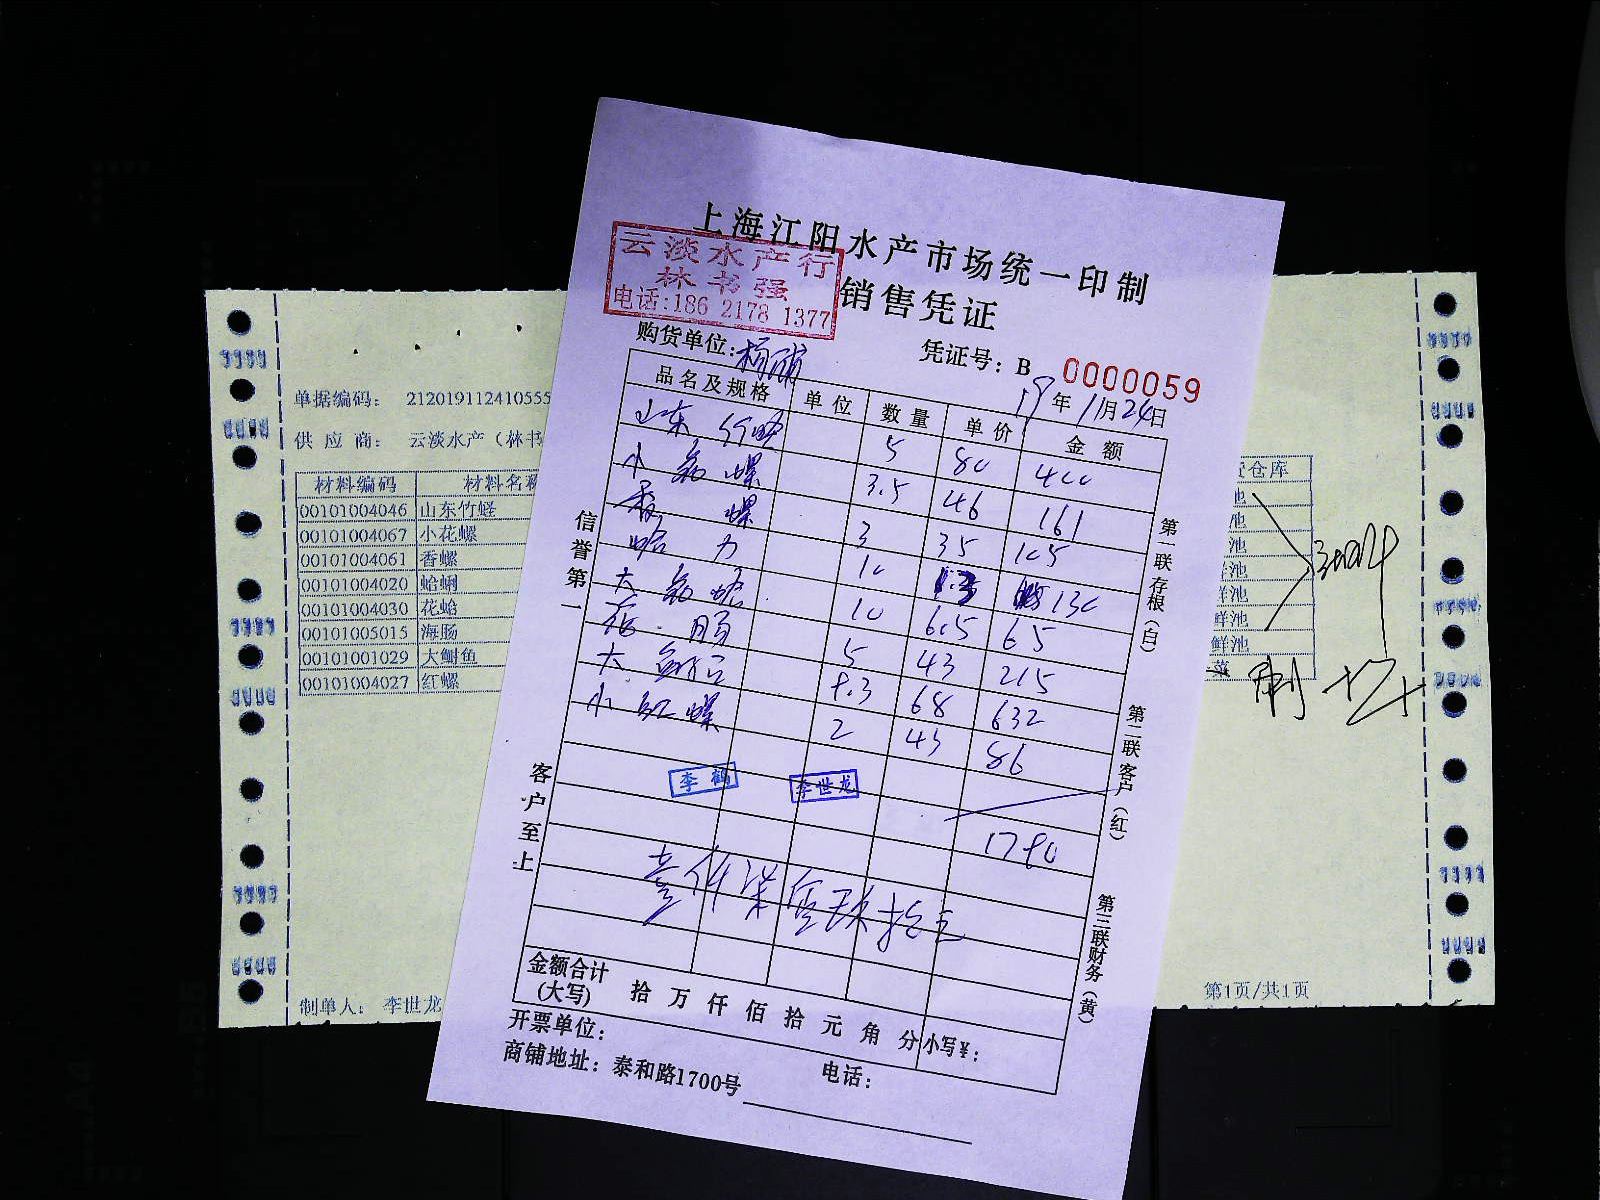 上海江阳水产市场统一印制
云淡水产行
林书强
电话:186 2178 1377
销售凭证
购货单位:杨浦
凭证号: B 0000059
19年11月24日
品名及规格 单位 数量 单价 金额
山东 竹蛏 5 80 400
小花螺 3.5 46 161
香螺 3 35 105
蛤力 10 13 130
大花蛤 10 6.5 65
海肠 5 43 215
大鲥鱼 9.3 68 632
小红螺 2 43 86
李鹤 李世龙
1790
壹仟柒佰玖拾元
信誉第一
客户至上
第一联存根(白)
第二联客户(红)
第三联财务(黄)
金额合计(大写) 拾 万 仟 佰 拾 元 角 分 小写¥:
开票单位:
商铺地址: 泰和路1700号 电话:
单据编码: 212019112410555
供 应 商: 云淡水产(林书
材料编码 材料名称 仓库
00101004046 山东竹蛏 池
00101004067 小花螺 池
00101004061 香螺 池
00101004020 蛤蜊 鲜池
00101004030 花蛤 鲜池
00101005015 海肠 鲜池
00101001029 大鲥鱼 鲜池
00101004027 红螺 菜
制单人: 李世龙
第1页/共1页